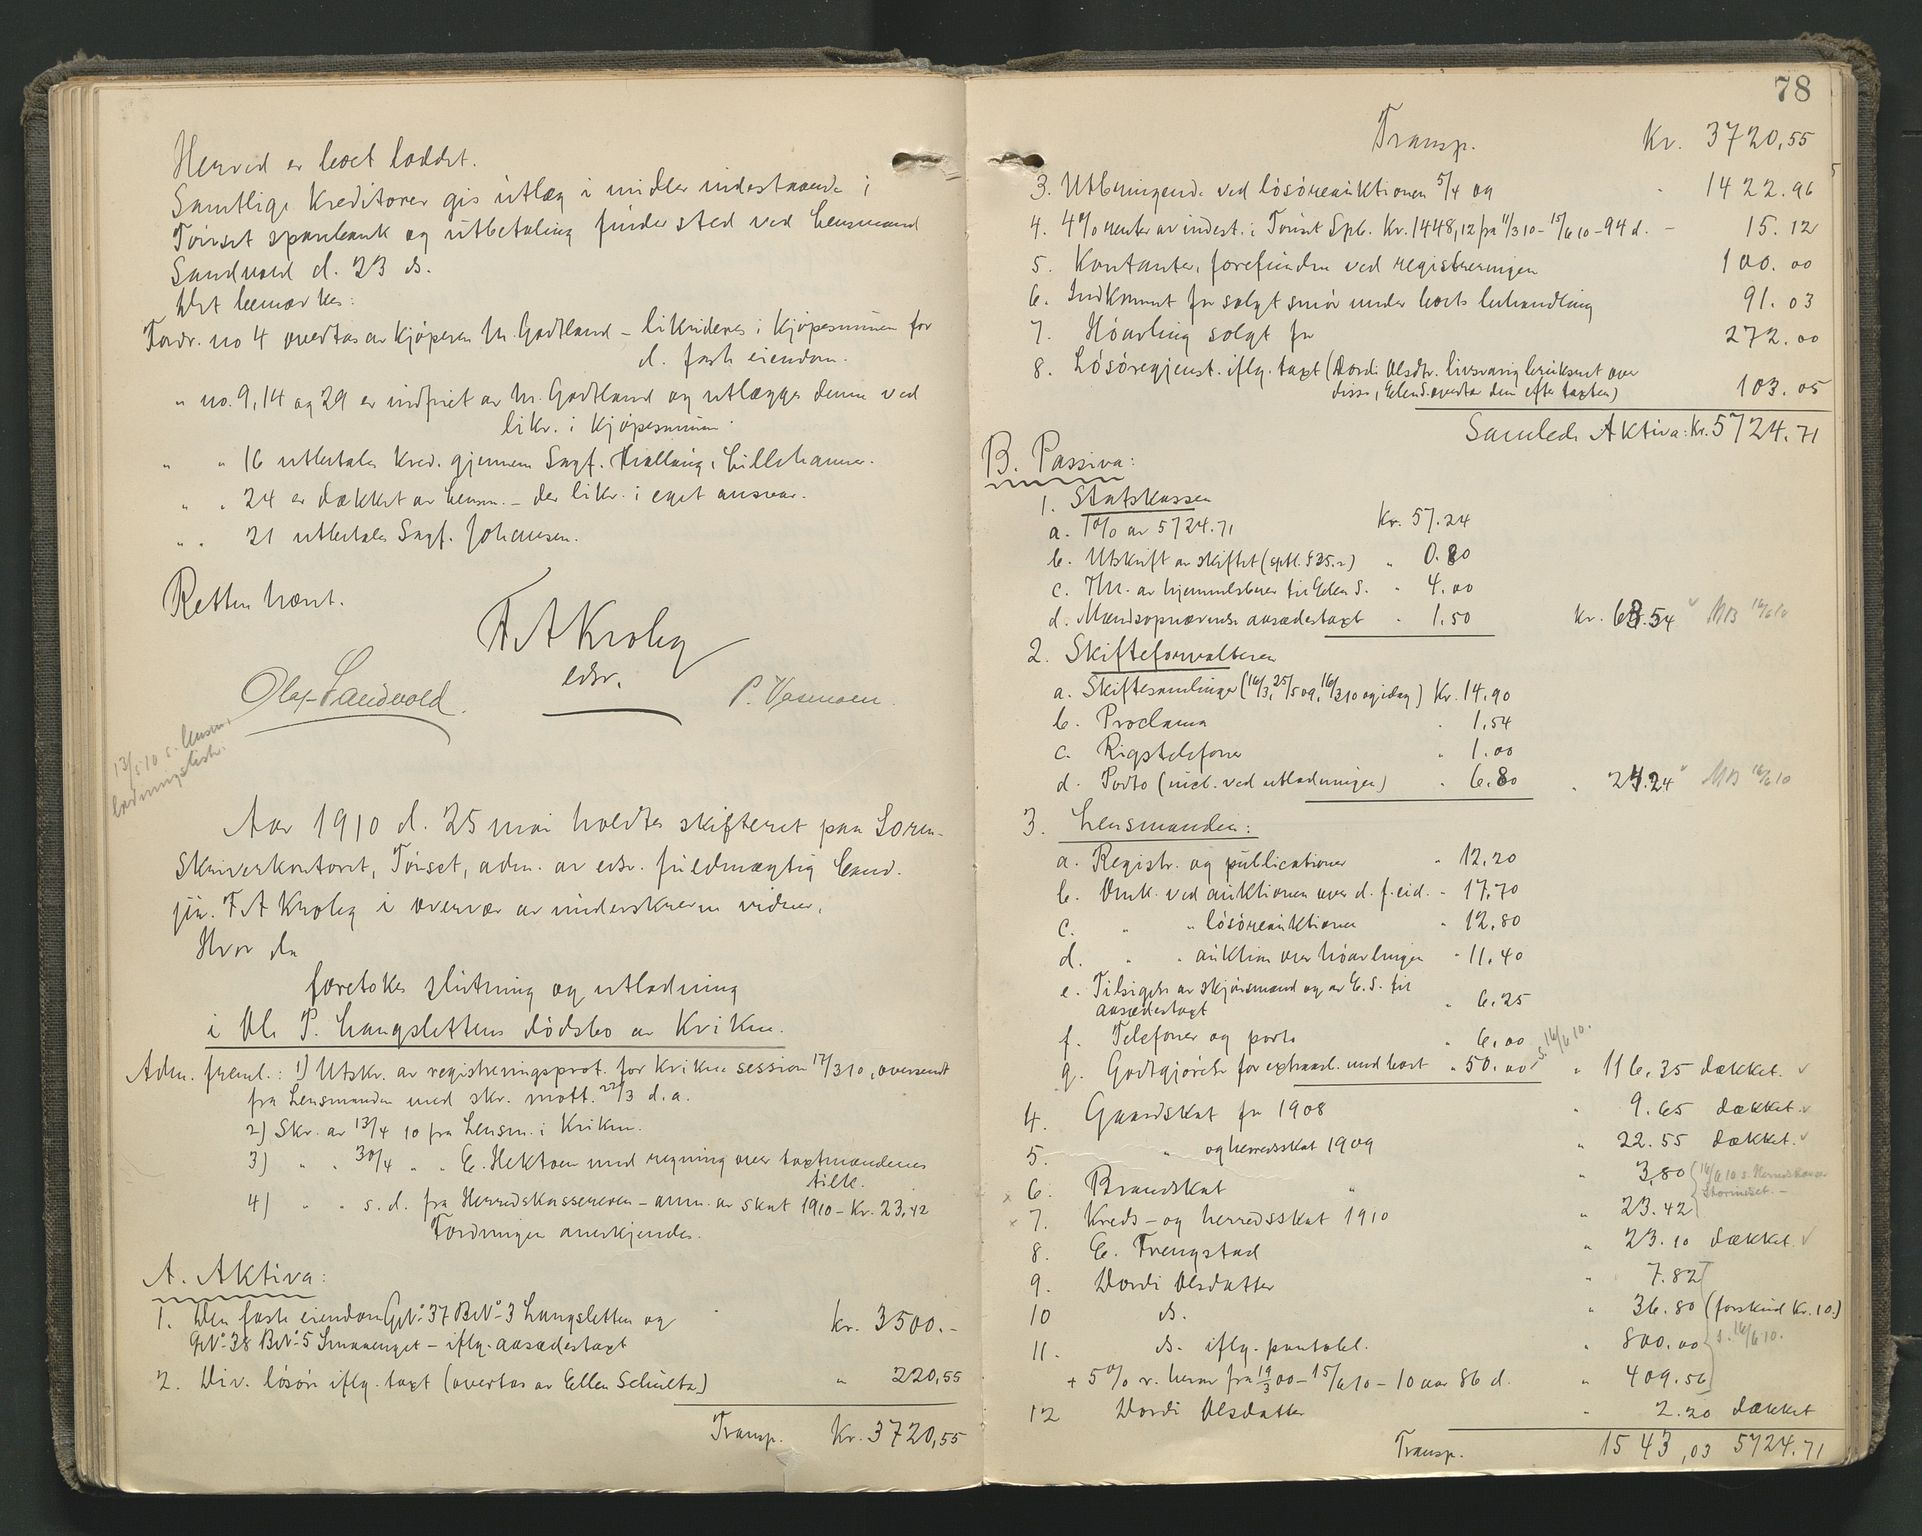 Herved er boet loddet.
Samtlige Kreditorer gis utlæg i midler indestaaende i
Tönset sparebank og utbetaling finder sted ved Lensmand
Sandvold d. 23 ds.
Det bemærkes:
Fordr. no 4 overtas av kjöperen M. Godtland – likvideres i Kjöpesummen for
d. faste eiendom.
" no. 9, 14 og 29 er indfriet av M. Godtland og utlægges denne ved
likv. i Kjöpesummen.
" " 16 utbetales Kred. gjennem Sagf. Lillehammer.
" " 24 er dækket av Lensm. – der likv. i eget ansvar.
" " 21 utbetales Sagf. Johansen.
Retten hævet.
F A Krohg
edsv.
Olaf Sandvold. P.
13/5 10 s. Lensm.
lodningsliste.
Aar 1910 d. 25 mai holdtes skifteret paa Soren-
skriverkontoret, Tönset, adm. av edsv. fuldmægtig Cand.
jur. F A Krohg i overvær av underskrevne vidner.
Hvor da
foretokes slutning og utlodning
i Ole P. Langslettens dödsbo av Kvikne.
Adm. freml.: 1) Utskr. av registreringsprot. for Kvikne session 17/3 10, oversendt
fra Lensmanden med skr. mott. 22/3 d.a.
2) Skr. av 13/4 10 fra Lensm. i Kvikne.
3) " " 30/4 " " E. Hektoen med regning over taxtmændenes
tilk.
4) " " s.d. fra Herredskassereren – anm. av skat 1910 – Kr. 23,42
Fordringen anerkjendes.
A. Aktiva:
1. Den faste eiendom GNo 37 BNo 3 Langsletten og
GNo 38 BNo 5 Smaaenget – iflg. aasædestaxt kr. 3500.–
2. Div. lösöre iflg. taxt (overtas av Ellen Schulta) " 220,55
Transp. Kr. 3720,55
78
Transp. Kr. 3720,55
3. Utbringende ved lösöreauktionen 5/4 og " 1422.96
4. 4% renter av indest. i Tönset Spb. Kr. 1448,12 fra 11/3 10 – 15/6 10 – 94 d. – 15.12
5. Kontanter, forefunden ved registreringen 100.00
6. Indkommet for solgt smör under boets behandling 91.03
7. Höavling solgt for 272.00
8. Lösöregjenst. iflg. taxt (Dordi Olsdtr. livsvarig bruksret over
disse, Ellend overtar dem efter taxten) 103.05
Samlede Aktiva: Kr. 5724.71
B. Passiva:
1. Statskassen
a. 1% av 5724.71 Kr. 57.24
b. Utskrift av skiftet (sptl. § 35.2) " 0.80
c. Thl. av hjemmelsbrev til Ellen S. " 4.00
d. Mændsopnævnelse aasædestaxt " 1.50 Kr. 63.54 MB 16/6 10
2. Skifteforvalteren
a. Skiftesamlinger (16/3, 25/5 09, 16/3 10 og idag) Kr. 14.90
b. Proclama " 1,54
c. Rigstelefoner " 1.00
d. Porto (incl. ved utlodningen) " 6.80 " 24.24 MB 16/6 10
3. Lensmanden:
a. Registr. og publicationer " 12.20
b. Omk. ved auktionen over d. f. eid. " 17.70
c. " " lösöreauktionen " 12.80
d. " " auktion over höavlingen " 11.40
e. Tilsigelse av skjönsmænd og av E.S. til
aasædestaxt " 6.25
f. Telefoner og porto " 6.00
g. Godtgjörelse for extraarb. med boet " 50.00 s. 16/6 10. " 116,35 dækket.
4. Gaardskat for 1908 " 9.65 dækket.
5. " og herredsskat 1909 " 22.55 dækket.
6. Brandskat " " 3,80 16/6 10 s. Herredskasserer
x 7. Kreds- og herredsskat 1910 " 23.42
8. E. Trengstad " 23.10 dækket.
9. Dordi Olsdatter " 7.82
10 ds. " 36.80 (forskud Kr. 10.)
11. ds. iflg. pantobl. " 800.00 s. 16/6 10.
+ 5% r. herav fra 19/3 00 – 15/6 10 – 10 aar 86 d. " 409.56
12 Dordi Olsdatter " 2.20 dækket
Transp. 1543,03 5724.71